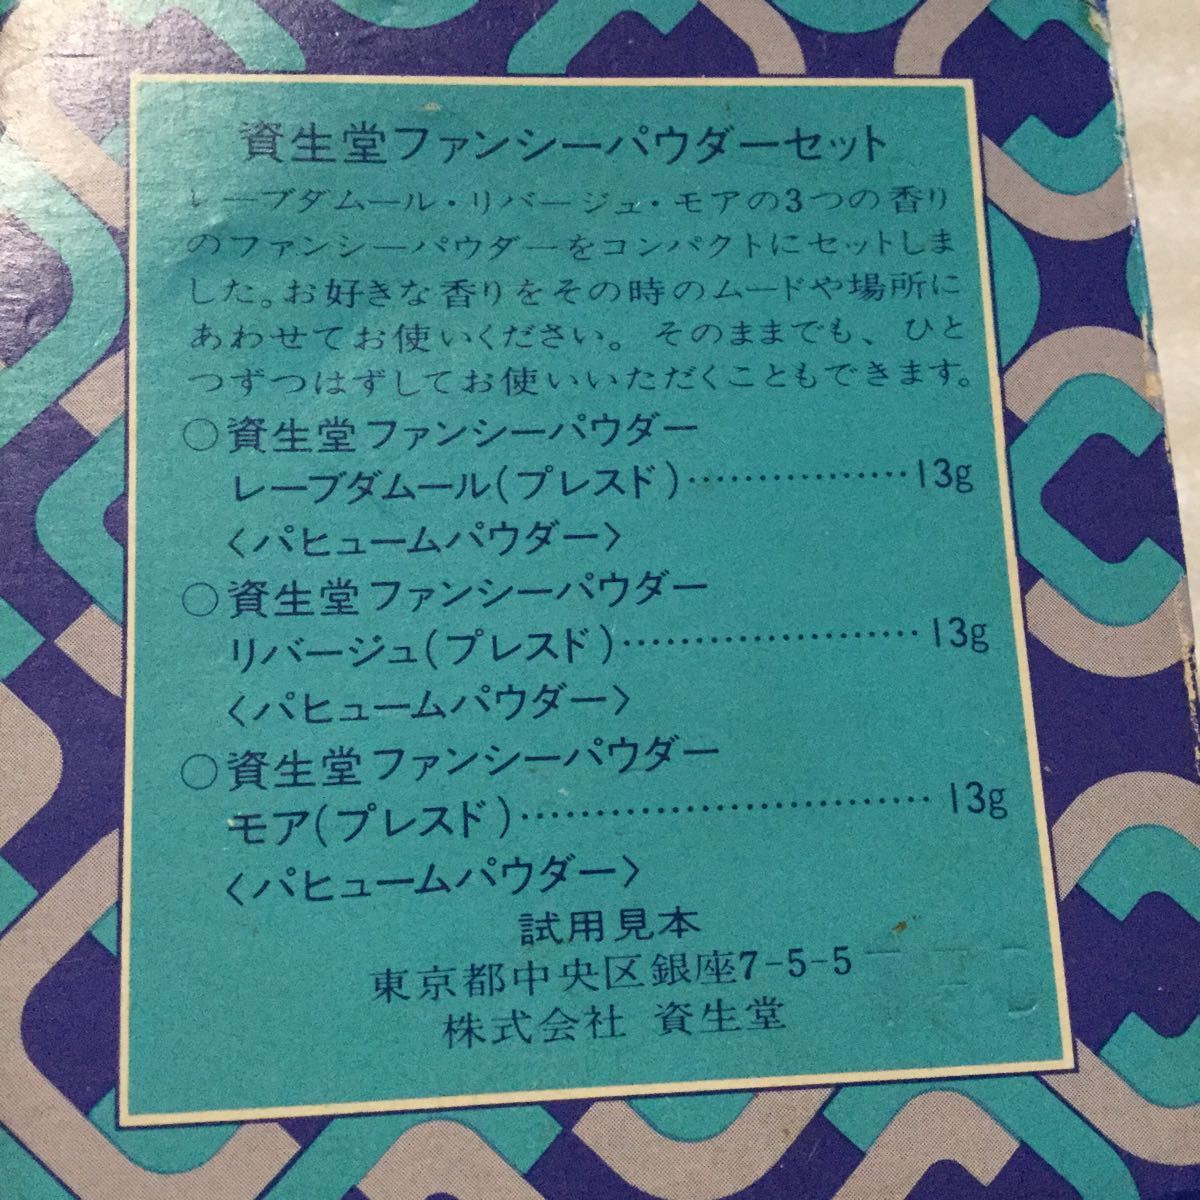 資生堂ファンシーパウダーセット
レーブダムール・リバージュ・モアの3つの香り
のファンシーパウダーをコンパクトにセットしま
した。お好きな香りをその時のムードや場所に
あわせてお使いください。そのままでも、ひと
つずつはずしてお使いいただくこともできます。
○資生堂ファンシーパウダー
レーブダムール(プレスド)………………13g
〈パヒュームパウダー〉
○資生堂ファンシーパウダー
リバージュ(プレスド)……………………13g
〈パヒュームパウダー〉
○資生堂ファンシーパウダー
モア(プレスド)……………………………13g
〈パヒュームパウダー〉
試用見本
東京都中央区銀座7-5-5
株式会社 資生堂